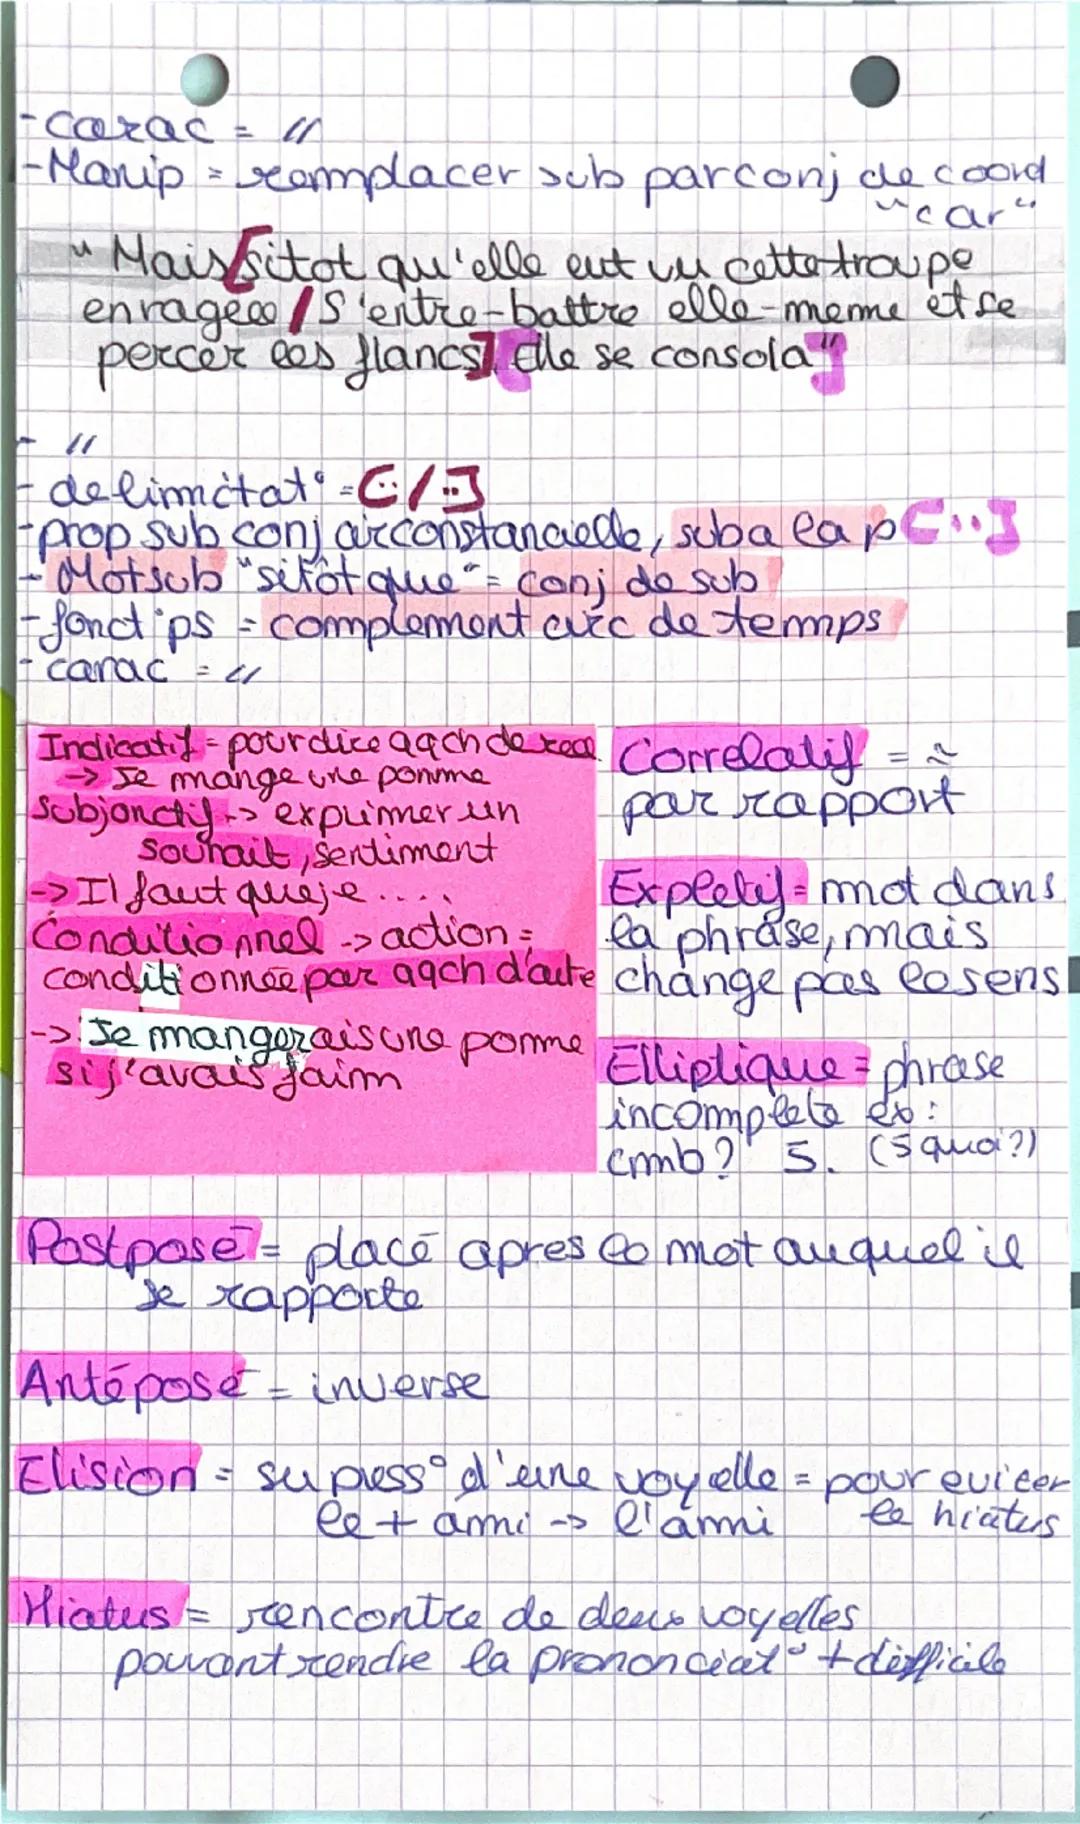 - carac = //
- Manip = remplacer sub par conj de coord
"car"
" Mais [sitot qu'elle eut vu cette troupe
enragée / S'entre-battre elle-meme et se
percer les flancs], [Elle se consola"]
- //
- delimitat° = [../..]
- prop sub conj circonstancielle, sub a la p [..]
- Mot sub "sitôt que" = conj de sub
- fonct° ps = complement circ de temps
- carac = //
Indicatif = pour dire qqch de reel
-> Je mange une pomme
Subjonctif -> exprimer un
souhait, sentiment
-> Il faut que je ....
Conditionnel -> action =
conditionnée par qqch d'autre
-> Je mangerais une pomme
si j'avais faim
Correlatif = ~
par rapport
Expletif = mot dans
la phrase, mais
change pas le sens
Elliptique = phrase
incomplete ex :
cmb ? 5. (5 quoi ?)
Postposé = placé apres le mot auquel il
se rapporte
Antéposé = inverse
Elision = supress° d'une voyelle = pour eviter
le + ami -> l'ami le hiatus
Hiatus = rencontre de deux voyelles
pouvant rendre la prononciat° + difficile